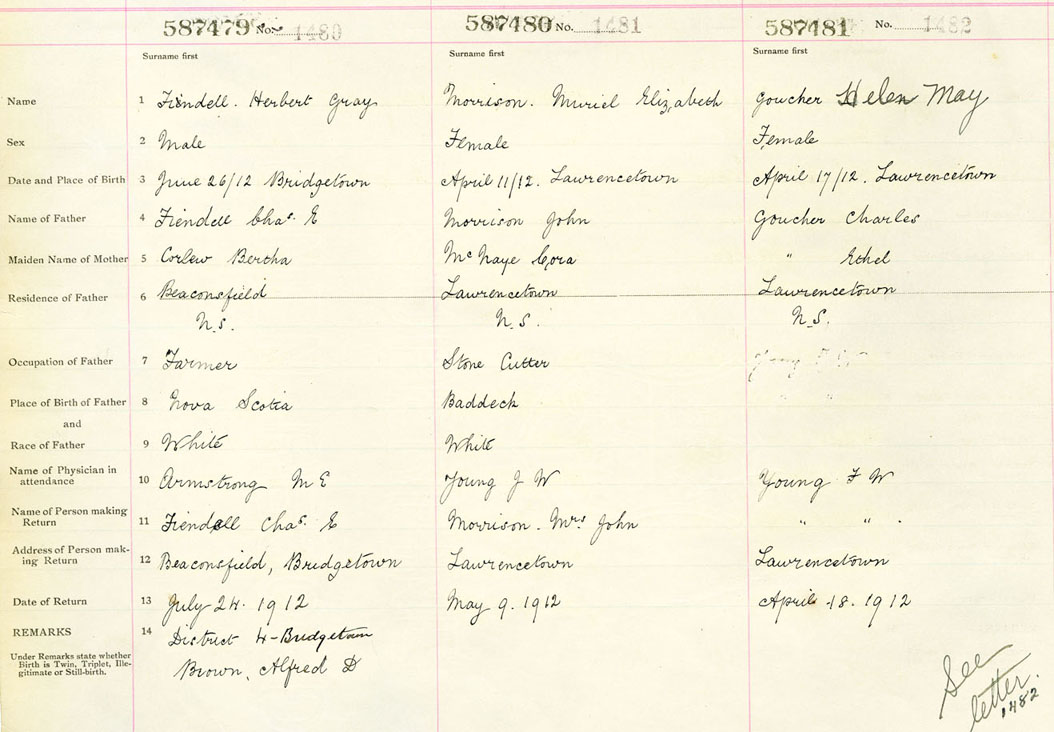 587479 No. 1480 587480 No. 1481 587481 No. 1482
Surname first Surname first Surname first
Name 1 Fiendell. Herbert Gray Morrison. Muriel Elizabeth Goucher Helen May
Sex 2 Male Female Female
Date and Place of Birth 3 June 26/12 Bridgetown April 11/12. Lawrencetown April 17/12. Lawrencetown
Name of Father 4 Fiendell Chas. E Morrison John Goucher Charles
Maiden Name of Mother 5 Corlew Bertha McNaye Cora " Ethel
Residence of Father 6 Beaconsfield Lawrencetown Lawrencetown
N.S. N.S. N.S.
Occupation of Father 7 Farmer Stone Cutter
Place of Birth of Father 8 Nova Scotia Baddeck
and
Race of Father 9 White White
Name of Physician in
attendance 10 Armstrong M E Young J W Young F W
Name of Person making
Return 11 Fiendell Chas. E Morrison. Mrs John " " .
Address of Person mak-
ing Return 12 Beaconsfield, Bridgetown Lawrencetown Lawrencetown
Date of Return 13 July 24. 1912 May 9. 1912 April 18. 1912
REMARKS 14 District 4-Bridgetown
Under Remarks state whether
Birth is Twin, Triplet, Ille-
gitimate or Still-birth.
Brown, Alfred D
See
letter.
1482